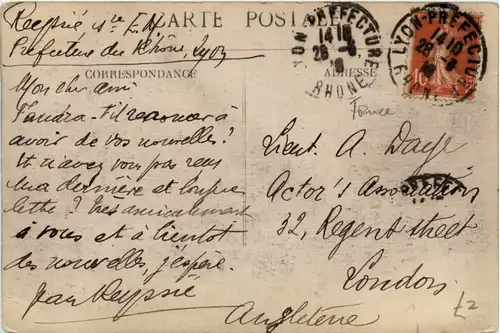 Reyssié, 1re E.N
Préfecture du Rhône, Lyon
CARTE POSTALE
CORRESPONDANCE
ADRESSE
LYON-PRÉFECTURE
14 10
28 -8
RHONE
LYON-PRÉFECTURE
14 10
28 -8
RHONE
10
France
Mon cher ami
Faudra-t-il renoncer à
avoir de vos nouvelles?
N'avez vous pas reçu
ma dernière et longue
lettre? Très amicalement
à vous et à bientôt
des nouvelles, j'espère.
Jean Reyssié
Lieut. A. Daye
Actor's Association
32, Regent street
London
Angleterre
£2